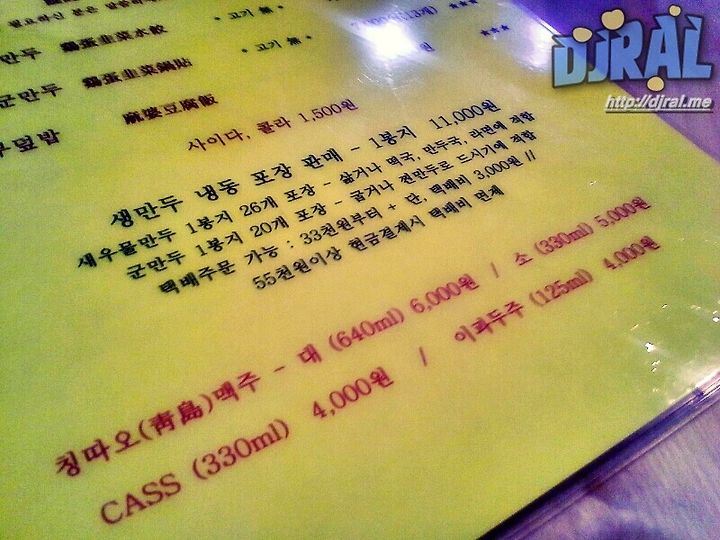 DJRAL
http://djral.me
* 고기 無 *
만두 鷄蛋韭菜水餃 * 고기 無 * ***
군만두 鷄蛋韭菜鍋貼 원 ***
덮밥 麻婆豆腐飯
사이다, 콜라 1,500원
생만두 냉동 포장 판매 - 1봉지 11,000원
새우물만두 1봉지 26개 포장 - 삶거나 떡국, 만두국, 라면에 적합
군만두 1봉지 20개 포장 - 굽거나 찐만두로 드시기에 적합
택배주문 가능 : 33천원부터 + 단, 택배비 3,000원 //
55천원이상 현금결제시 택배비 면제
칭따오(靑島)맥주 - 대 (640ml) 6,000원 / 소 (330ml) 5,000원
CASS (330ml) 4,000원 / 이과두주 (125ml) 4,000원